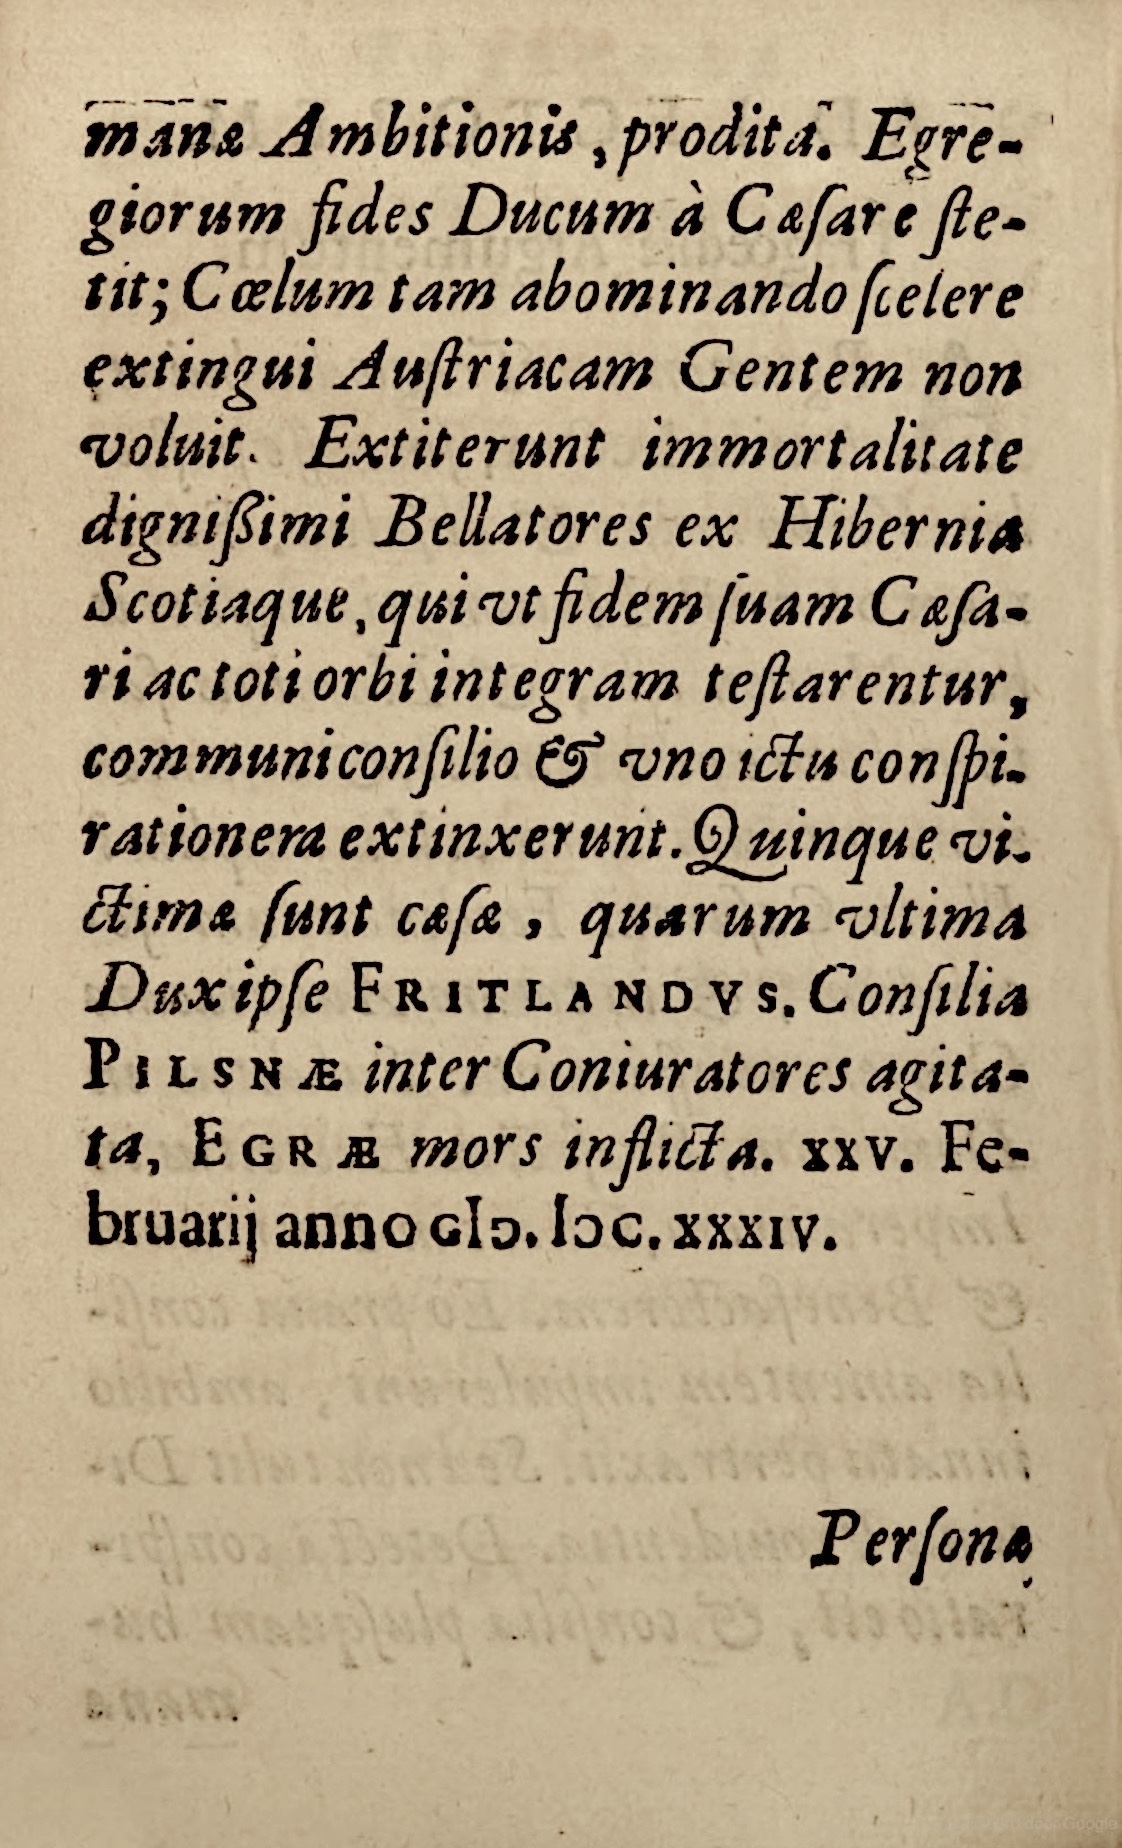 manæ Ambitionis, prodita. Egre-
giorum fides Ducum à Cæſare ſte-
tit; Cœlum tam abominando ſcelere
extingui Auſtriacam Gentem non
voluit. Extiterunt immortalitate
digniſſimi Bellatores ex Hibernia
Scotiaque, qui vt fidem ſuam Cæſa-
ri ac toti orbi integram teſtarentur,
communi conſilio & vno ictu conſpi-
rationem extinxerunt. Quinque vi-
ctimæ ſunt cæſæ, quarum vltima
Dux ipſe FRITLANDVS. Conſilia
PILSNÆ inter Coniuratores agita-
ta, EGRÆ mors inflicta. XXV. Fe-
bruarij anno CIↃ. IↃC. XXXIV.
Perſonæ